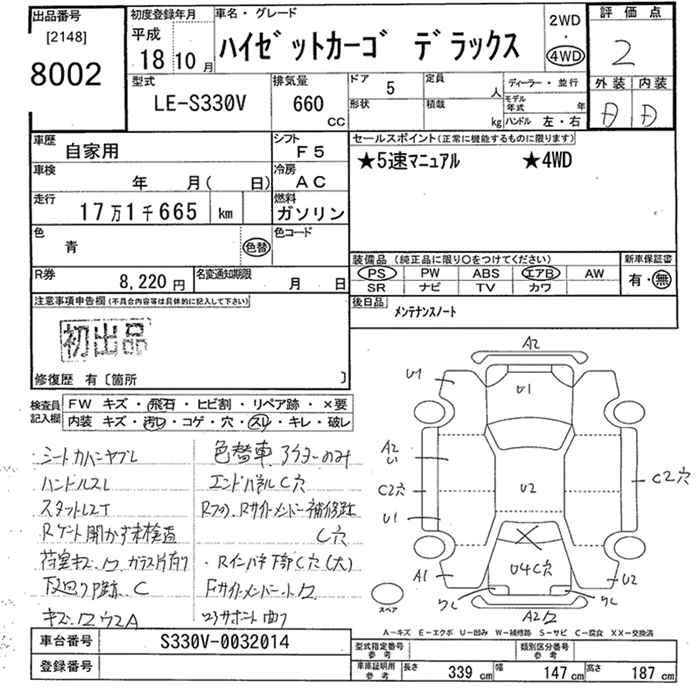 出品番号
[2148]
8002
初度登録年月
平成
18 10月
車名・グレード
ハイゼットカーゴ デラックス
2WD
・
4WD
評価点
2
外装 内装
D D
型式
LE-S330V
排気量
660
CC
ドア
5
形状
定員
人
積載
kg
ディーラー・並行
モデル年式 年
ハンドル 左・右
車歴
自家用
シフト
F5
車検
年 月( 日)
冷房
AC
走行
17万1千665 km
燃料
ガソリン
色
青
色替
色コード
R券
8,220円
名変通知期限
月 日
セールスポイント(正常に機能するものに限ります)
★5速マニュアル ★4WD
装備品(純正品に限り○をつけてください)
PS PW ABS エアB AW
SR ナビ TV カワ
新車保証書
有・無
後日品
メンテナンスノート
注意事項申告欄(不具合内容等は具体的に記入して下さい)
初出品
修復歴 有〔箇所 〕
検査員記入欄
FW キズ・飛石・ヒビ割・リペア跡・×要
内装 キズ・汚レ・コゲ・穴・スレ・キレ・破レ
シートカバーヤブレ
ハンドルスレ
スタットレスT
Rゲート開かず未検査
荷室キズ、ワ ガラス片有り
下廻り跡、C
キズ、ワ ウスA
色替車 アウターのみ
エンドパネルC穴
Rフロ、Rサイドメンバー補修跡
C穴
・Rインパネ下部C穴(大)
Fサイドメンバー、ト、ワ
コアサポート曲り
A2
U1
U1
A2
U1
C2穴
U1
U2
C2穴
A1
U4C穴
U2
ワレ
ワレ
A2ワ
スペア
A-キズ E-エクボ U-凹み W-補修跡 S-サビ C-腐食 XX-交換済
車台番号
S330V-0032014
登録番号
型式指定番号
参考
類別区分番号
参考
車庫証明用
参考
長さ 339 cm 幅 147 cm 高さ 187 cm